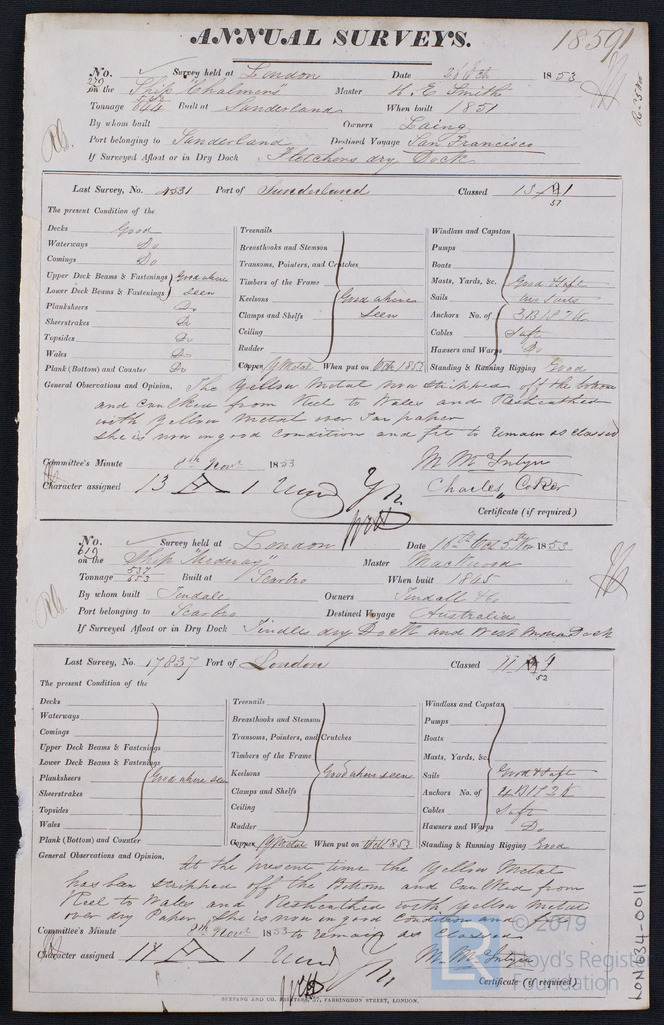 ANNUAL SURVEYS.
18591
No. 279 Survey held at London Date 26 Octr 1853
on the Ship "Chalmers" Master H. E. Smith
Tonnage 544 Built at Sunderland When built 1851
By whom built Owners Laing
Port belonging to Sunderland Destined Voyage San Francisco
If Surveyed Afloat or in Dry Dock Fletchers dry Dock
Last Survey, No. 4531 Port of Sunderland Classed 13 A 1
51
The present Condition of the
Decks Good
Waterways Do
Comings Do
Upper Deck Beams & Fastenings Good where
Lower Deck Beams & Fastenings seen
Planksheers Do
Sheerstrakes Do
Topsides Do
Wales Do
Plank (Bottom) and Counter Do
Treenails
Breasthooks and Stemson
Transoms, Pointers, and Crutches
Timbers of the Frame
Keelsons Good where
Clamps and Shelfs seen
Ceiling
Rudder
Copper Y Metal When put on Octr 1853
Windlass and Capstan
Pumps
Boats
Masts, Yards, &c. Good & Safe
Sails
Anchors No. of 3 B 1 S 2 K
Cables Safe
Hawsers and Warps Do
Standing & Running Rigging Good
General Observations and Opinion, The Yellow Metal now stripped off the bottom
and Caulked from Keel to Wales and Resheathed
with Yellow Metal over Tar paper
She is now in good Condition and fit to remain as classed
Committee's Minute 8th Novr 1853 M McIntyre
Character assigned 13 A 1 Charles Coker
Certificate (if required)
No. 619 Survey held at London Date 10th Oct 5th Nov 1853
on the Ship "Medway" Master Mackwood
Tonnage 537/653 Built at Scarbro When built 1845
By whom built Tindale Owners Tindall & Co
Port belonging to Scarbro Destined Voyage Australia
If Surveyed Afloat or in Dry Dock Tindles dry Dock and West India Dock
Last Survey, No. 17837 Port of London Classed 11 A 1
52
The present Condition of the
Decks
Waterways
Comings
Upper Deck Beams & Fastenings
Lower Deck Beams & Fastenings
Planksheers Good where seen
Sheerstrakes
Topsides
Wales
Plank (Bottom) and Counter
Treenails
Breasthooks and Stemson
Transoms, Pointers, and Crutches
Timbers of the Frame
Keelsons Good where seen
Clamps and Shelfs
Ceiling
Rudder
Copper Y Metal When put on Oct 1853
Windlass and Capstan
Pumps
Boats
Masts, Yards, &c.
Sails Good & Safe
Anchors No. of 4 B 1 S 2 K
Cables Safe
Hawsers and Warps Do
Standing & Running Rigging Good
General Observations and Opinion, At the present time the Yellow Metal
has been stripped off the Bottom and Caulked from
Keel to Wales and Resheathed with Yellow Metal
over dry Paper She is now in good Condition and fit
Committee's Minute 8th Novr 1853 to remain as Classed
Character assigned 11 A 1 M McIntyre
Certificate (if required)
© 2019
LR Lloyd's Register
Foundation
LON634-0011